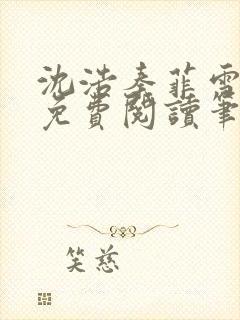 沈浩秦菲雪
免費閱讀筆
笑慈